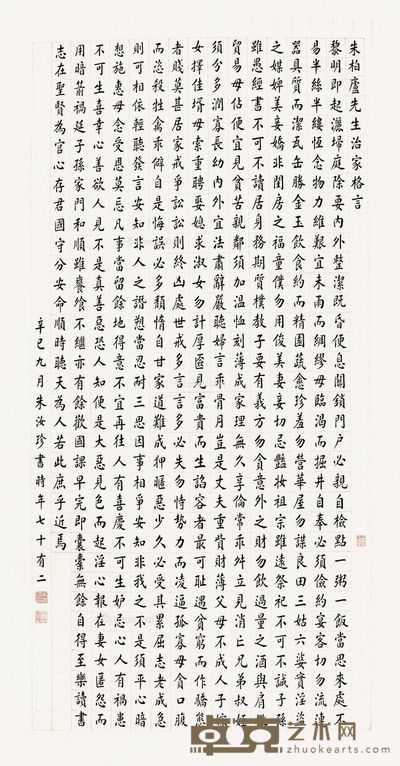 朱柏廬先生治家格言
黎明即起灑掃庭除要內外整潔既昏便息關鎖門戶必親自檢點一粥一飯當思來處不
易半絲半縷恆念物力維艱宜未雨而綢繆毋臨渴而掘井自奉必須儉約宴客切勿流連
器具質而潔瓦缶勝金玉飲食約而精園蔬愈珍羞勿營華屋勿謀良田三姑六婆實淫盜
之媒婢美妾嬌非閨房之福童僕勿用俊美妻妾切忌豔妝祖宗雖遠祭祀不可不誠子孫
雖愚經書不可不讀居身務期質樸教子要有義方勿貪意外之財勿飲過量之酒與肩挑
貿易毋佔便宜見貧苦親鄰須加溫恤刻薄成家理無久享倫常乖舛立見消亡兄弟叔姪
須分多潤寡長幼內外宜法肅辭嚴聽婦言乖骨月豈是丈夫重貲財薄父母不成人子嫁
女擇佳壻毋索重聘娶媳求淑女勿計厚奩見富貴而生諂容者最可恥遇貧窮而作驕態
者賤莫甚居家戒爭訟訟則終凶處世戒多言言多必失勿恃勢力而凌逼孤寡毋貪口腹
而恣殺牲禽乖僻自是悔誤必多頹惰自甘家道難成狎暱惡少久必受其累屈志老成急
則可相依輕聽發言安知非人之譖愬當忍耐三思因事相爭安知非我之不是須平心暗
想施惠毋念受恩莫忘凡事當留餘地得意不宜再往人有喜慶不可生妒忌心人有禍患
不可生喜幸心善欲人見不是真善惡恐人知便是大惡見色而起淫心報在妻女匿怨而
用暗箭禍延子孫家門和順雖饔飧不繼亦有餘歡國課早完即囊橐無餘自得至樂讀書
志在聖賢為官心存君國守分安命順時聽天為人若此庶乎近焉
辛巳九月朱汝珍書時年七十有二
卓克艺术网
zhuokearts.com